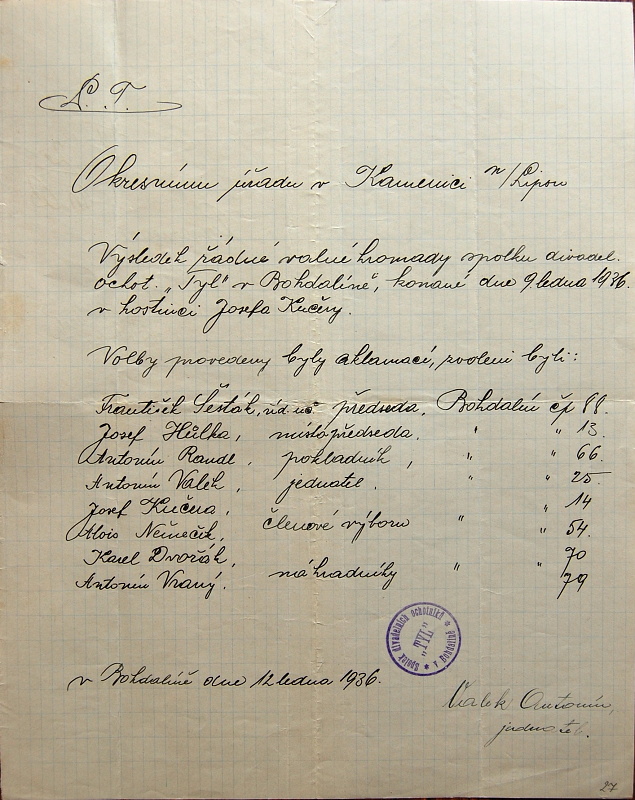 L. T.
Okresnímu úřadu v Kamenici n/Lipou
Výsledek řádné valné hromady spolku divadel.
ochot. „Tyl" v Bohdalíně, konané dne 9 ledna 1936.
v hostinci Josefa Kučery.
Volby provedeny byly aklamací, zvoleni byli:
František Šesták, říd. uč. předseda, Bohdalín čp 88.
Josef Hůlka, místopředseda, " " 13.
Antonín Randl, pokladník, " " 66.
Antonín Valek, jednatel. " " 25.
Josef Kučera, 14
Alois Němeček, členové výboru " " 54.
Karel Dvořák, 70
Antonín Vraný. náhradníky " " 79
Spolek divadelních ochotníků * v Bohdalíně *
„TYL"
v Bohdalíně dne 12 ledna 1936.
Valek Antonín,
jednatel.
27